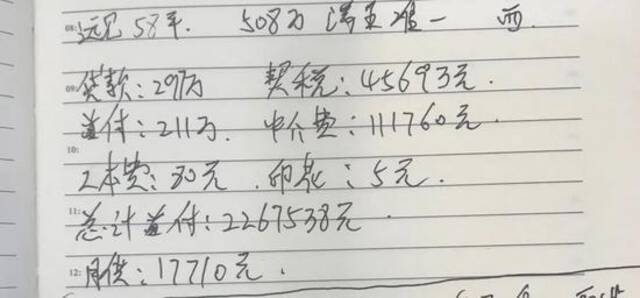 08: 远见58平. 508万 满五唯一 西
09: 贷款:297万 契税:45693元.
首付:211万. 中介费:111760元.
10:
工本费:80元. 印花:5元.
11: 总计首付:2267538元
12: 月供:17710元.